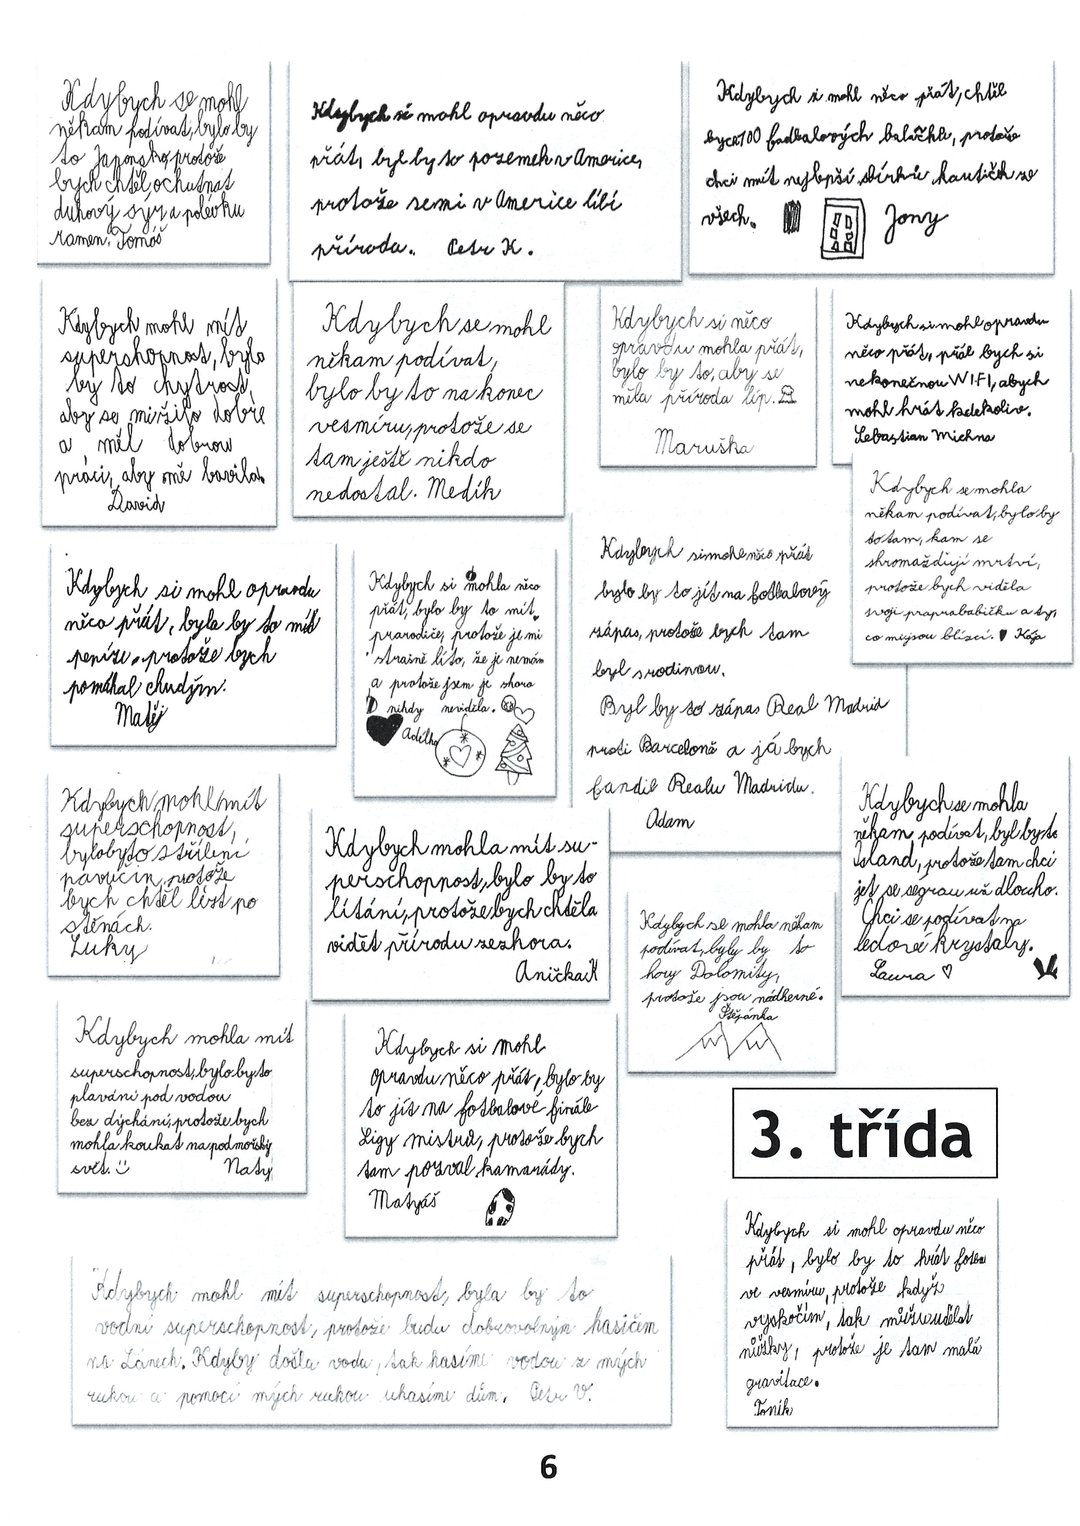 Kdybych se mohl
někam podívat, bylo by
to Japonsko, protože
bych chtěl ochutnat
duhový sýr a polévku
ramen. Tomáš
Kdybych si mohl opravdu něco
přát, byl by to pozemek v Americe,
protože se mi v Americe líbí
příroda. Petr K.
Kdybych si mohl něco přát, chtěl
bych 100 fotbalových balíčků, protože
chci mít nejlepší sbírku kartiček ze
všech. Jony
Kdybych mohl mít
superschopnost, bylo
by to chytrost,
aby se mi žilo dobře
a měl dobrou
práci, aby mě bavila.
David
Kdybych se mohl
někam podívat,
bylo by to na konec
vesmíru, protože se
tam ještě nikdo
nedostal. Medík
Kdybych si něco
opravdu mohla přát,
bylo by to, aby se
měla příroda líp.
Maruška
Kdybych si mohl opravdu
něco přát, přál bych si
nekonečnou WIFI, abych
mohl hrát kdekoliv.
Sebastian Michna
Kdybych se mohla
někam podívat, bylo by
to tam, kam se
shromažďují mrtví,
protože bych viděla
svoji praprababičku a ty,
co mi jsou blízcí. Kája
Kdybych si mohl opravdu
něco přát, byla by to mít
peníze, protože bych
pomáhal chudým.
Matěj
Kdybych si mohla něco
přát, bylo by to mít
prarodiče, protože je mi
strašně líto, že je nemám
a protože jsem je skoro
nikdy neviděla.
Adélka
Kdybych si mohl něco přát
bylo by to jít na fotbalový
zápas, protože bych tam
byl s rodinou.
Byl by to zápas Real Madrid
proti Barceloně a já bych
fandil Realu Madridu.
Adam
Kdybych mohl mít
superschopnost,
bylo by to střílení
pavučin, protože
bych chtěl lízt po
stěnách.
Luky
Kdybych mohla mít su-
perschopnost, bylo by to
lítání, protože bych chtěla
vidět přírodu ze zhora.
Anička K
Kdybych se mohla
někam podívat, byl by to
Island, protože tam chci
jet se segrau už dlouho.
Chci se podívat na
ledové krystaly.
Laura
Kdybych se mohla někam
podívat, byly by to
hory Dolomity,
protože jsou nádherné.
Štěpánka
Kdybych mohla mít
superschopnost, bylo by to
plavání pod vodou
bez dýchání, protože bych
mohla koukat na podmořský
svět. Naty
Kdybych si mohl
opravdu něco přát, bylo by
to jít na fotbalové finále
Ligy mistrů, protože bych
tam pozval kamarády.
Matyáš
3. třída
Kdybych si mohl opravdu něco
přát, bylo by to hrát fotbal
ve vesmíru, protože když
vyskočím, tak můžu udělat
nůžky, protože je tam malá
gravitace.
Toník
Kdybych mohl mít superschopnost, byla by to
vodní superschopnost, protože budu dobrovolným hasičem
na Lánech. Kdyby došla voda, tak hasíme vodou z mých
rukou a pomocí mých rukou uhasíme dům. Petr V.
6